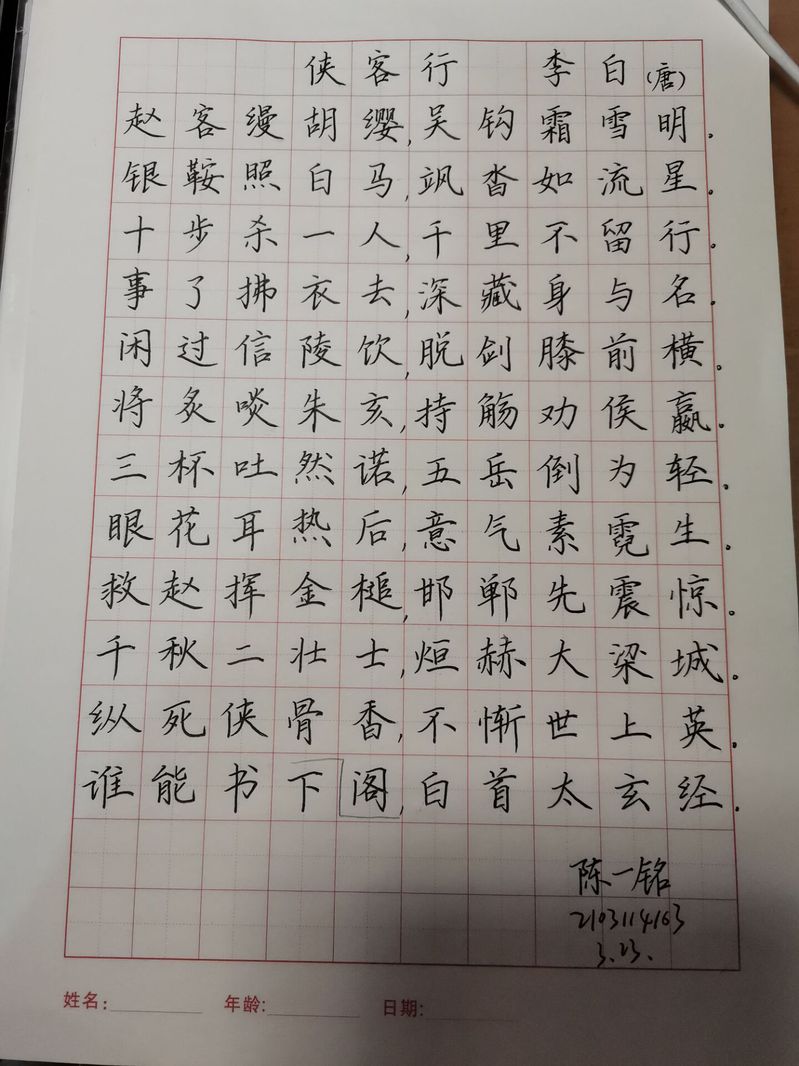 侠客行 李白(唐)
赵客缦胡缨,吴钩霜雪明。
银鞍照白马,飒沓如流星。
十步杀一人,千里不留行。
事了拂衣去,深藏身与名。
闲过信陵饮,脱剑膝前横。
将炙啖朱亥,持觞劝侯嬴。
三杯吐然诺,五岳倒为轻。
眼花耳热后,意气素霓生。
救赵挥金槌,邯郸先震惊。
千秋二壮士,烜赫大梁城。
纵死侠骨香,不惭世上英。
谁能书下阁,白首太玄经。
陈一铭
2103114163
3.23.
姓名: 年龄: 日期: